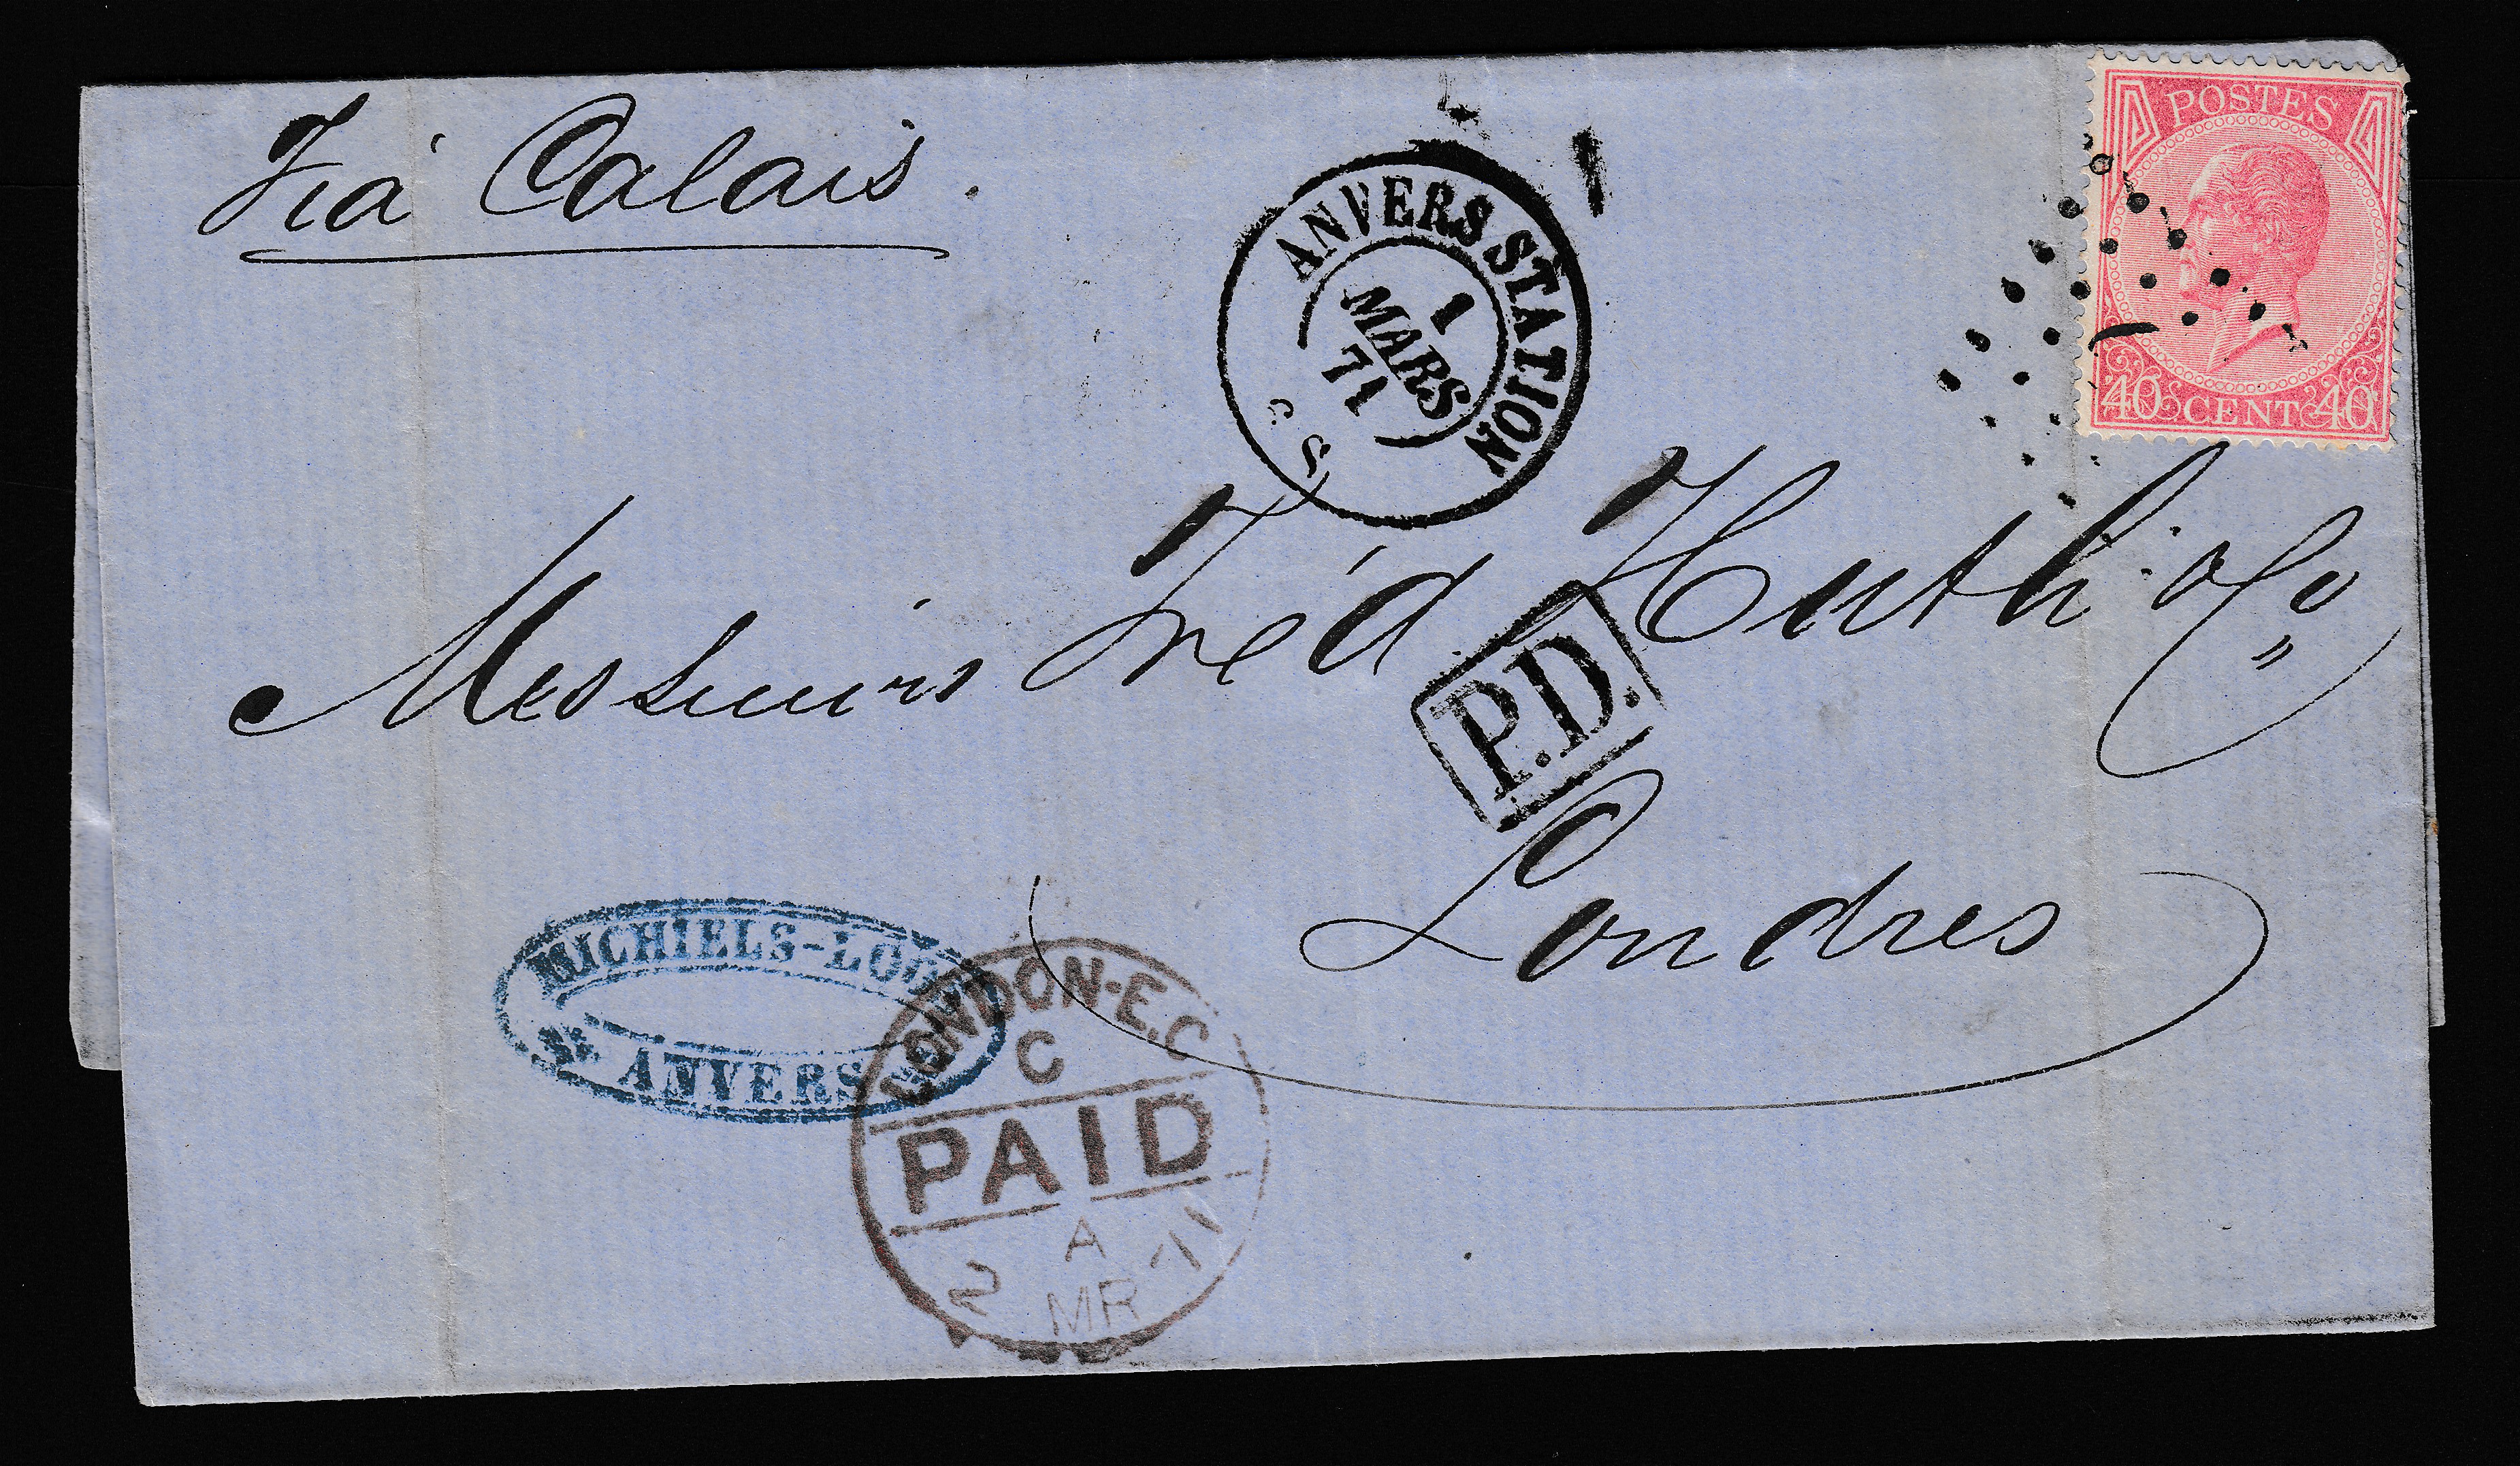 Via Calais.
POSTES
40 CENT 40
ANVERS STATION
1
MARS
71
C. S.
Messieurs Fréd. Huth & Co
P.D.
Londres
MICHIELS-
ANVERS
LONDON-E.C
C
PAID
A
2 MR 71